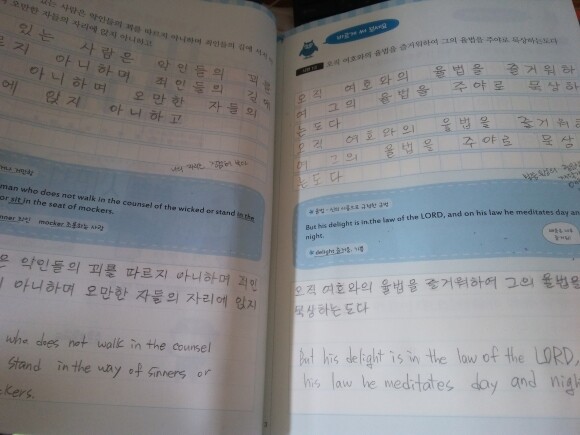 있는 사람은 악인들의 꾀를
따르지 아니하며 죄인들의 길에
아니하며 오만한 자들의
앉지 아니하고
man who does not walk in the counsel of the wicked or stand in the
or sit in the seat of mockers.
mocker 조롱하는 사람
은 악인들의 꾀를 따르지 아니하며 죄인
아니하며 오만한 자들의 자리에 앉지
who does not walk in the counsel
stand in the way of sinners or
ckers.
바르게 써 보아요
오직 여호와의 율법을 즐거워하여 그의 율법을 주야로 묵상하는도다
오직 여호와의 율법을 즐거워하
여 그의 율법을 주야로 묵상하
는도다
오직 여호와의 율법을 즐거워하
여 그의 율법을 주야로 묵상
는도다
But his delight is in the law of the LORD, and on his law he meditates day an
night.
delight 즐거움, 기쁨
오직 여호와의 율법을 즐거워하여 그의 율법을
묵상하는도다
But his delight is in the law of the LORD,
his law he meditates day and nigh